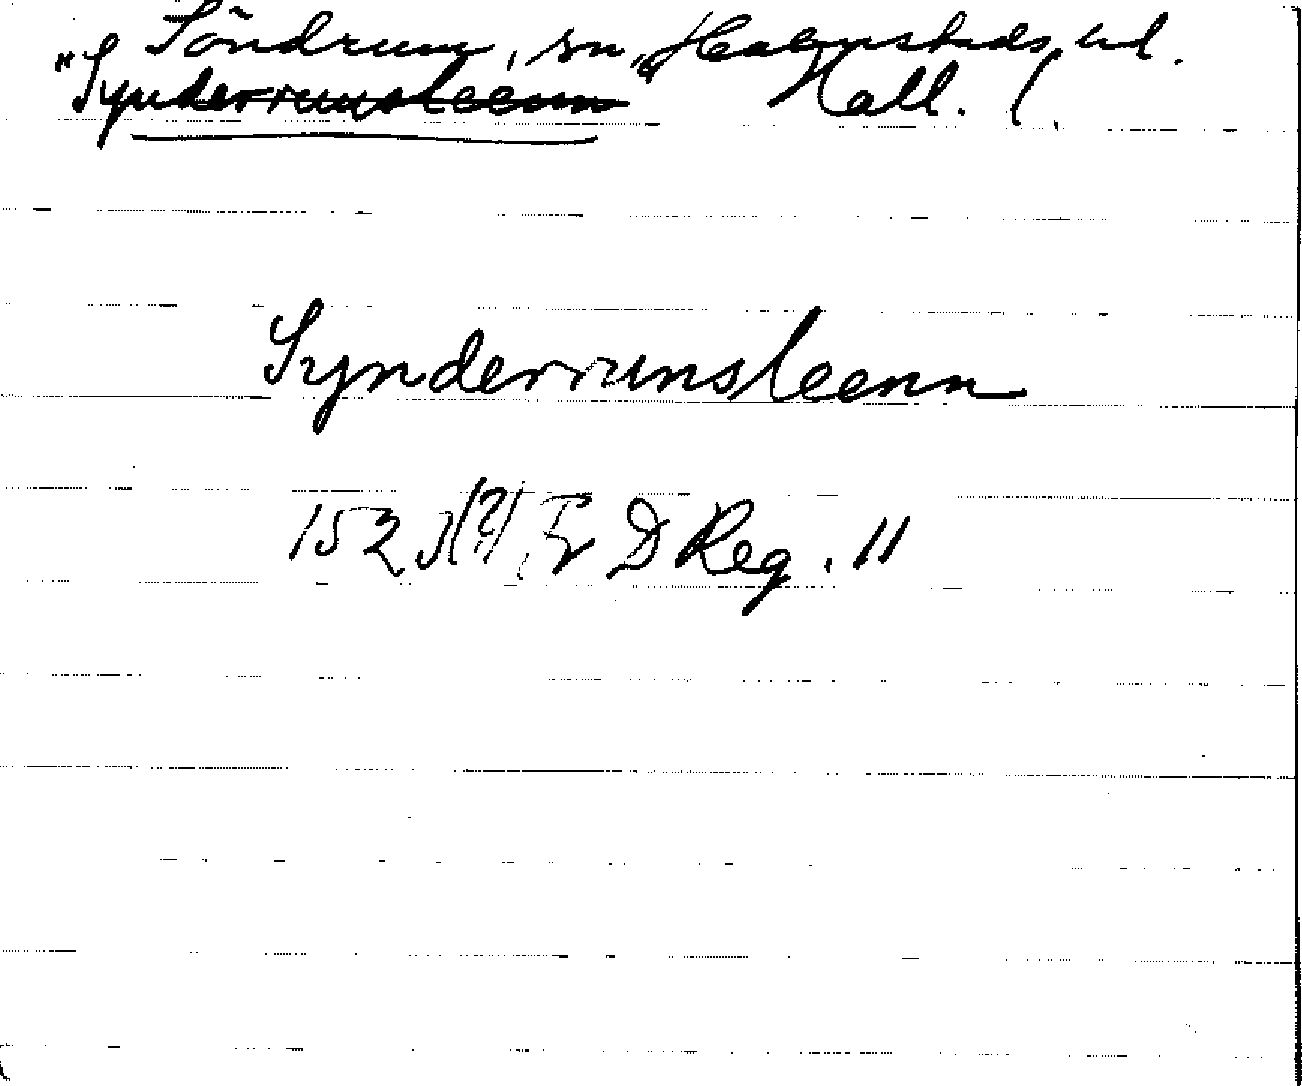 Söndrum, sn, Halmstads hd.
"Synderrumsleenn Hall. l.
Synderrumsleenn
152 (?) D Reg. 11